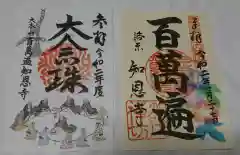 参拝 令和二年度
大念珠
大本山百萬遍知恩寺
奉拝 令和二年
百萬遍
洛東 知恩寺